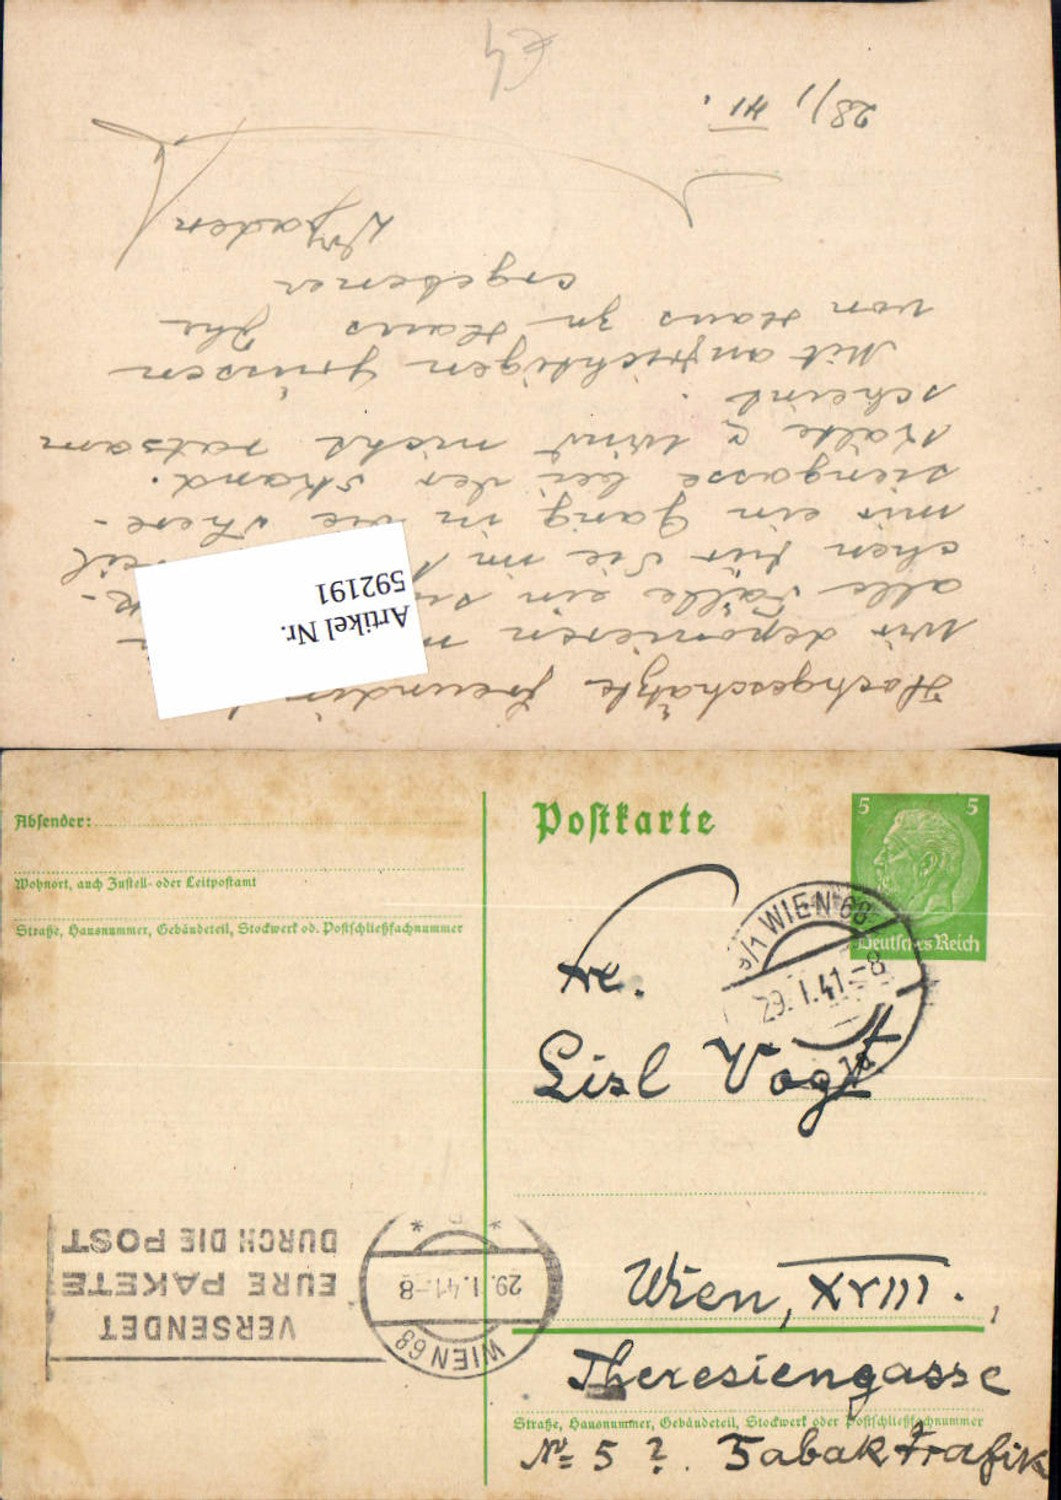 Hochgeschätzte Freundin
Wir deponieren
alle Fälle ein
chen für Sie in
mir ein Gang in die There-
siengasse bei der Hand.
Kälte & Wind nicht ratsam
scheint.
Mit aufrichtigen Grüssen
von Haus zu Haus Ihr
ergebener
28/I 41.
€4
Artikel Nr.
592191
Absender:
Wohnort, auch Zustell- oder Leitpostamt
Straße, Hausnummer, Gebäudeteil, Stockwerk od. Postschließfachnummer
Postkarte
5 5
Deutsches Reich
WIEN 68
29.I.41.-8
Fr.
Lisl Vogt
VERSENDET
EURE PAKETE
DURCH DIE POST
WIEN 68
29.I.41-8
Wien, XVIII.,
Theresiengasse
Straße, Hausnummer, Gebäudeteil, Stockwerk oder Postschließfachnummer
No 5 ?. Tabak Trafik